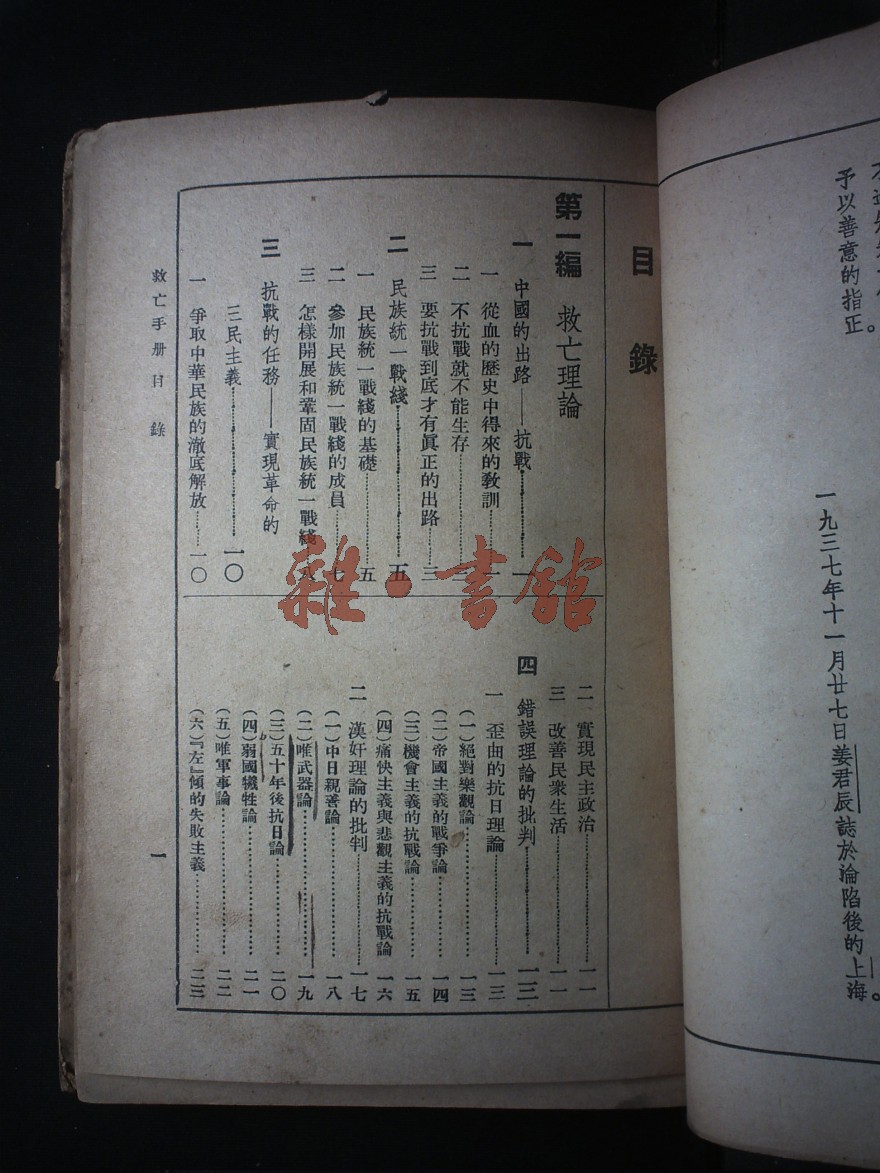 予以善意的指正。
一九三七年十一月廿七日姜君辰誌於淪陷後的上海。
目錄
第一編 救亡理論
一 中國的出路——抗戰 一
一 從血的歷史中得來的教訓 一
二 不抗戰就不能生存
三 要抗戰到底才有眞正的出路 三
二 民族統一戰綫 五
一 民族統一戰綫的基礎 五
二 參加民族統一戰綫的成員 七
三 怎樣開展和鞏固民族統一戰綫 八
三 抗戰的任務——實現革命的
三民主義 一〇
一 爭取中華民族的澈底解放 一〇
二 實現民主政治 一一
三 改善民衆生活 一一
四 錯誤理論的批判 一三
一 歪曲的抗日理論 一三
(一)絕對樂觀論 一三
(二)帝國主義的戰爭論 一四
(三)機會主義的抗戰論 一五
(四)痛快主義與悲觀主義的抗戰論 一六
二 漢奸理論的批判 一七
(一)中日親善論 一八
(二)唯武器論 一九
(三)五十年後抗日論 二〇
(四)弱國犧牲論 二一
(五)唯軍事論 二二
(六)『左』傾的失敗主義 二三
救亡手册目錄
一
雜·書館